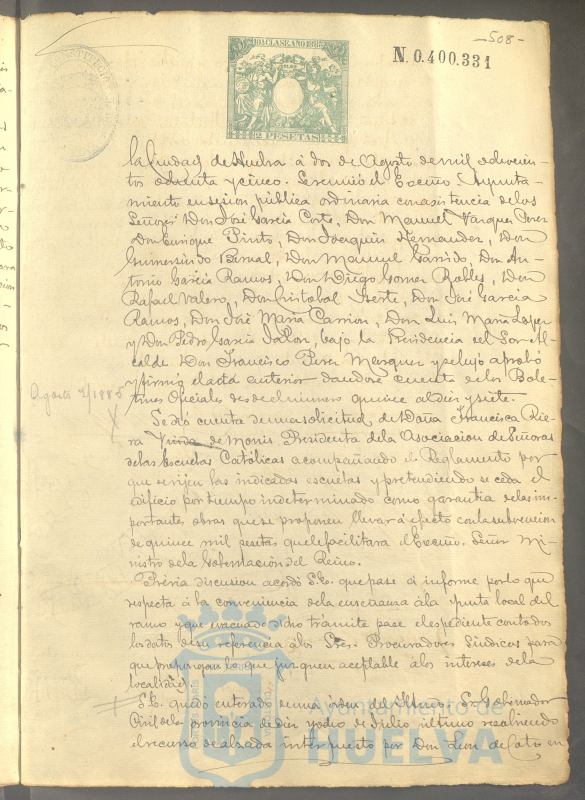 -508-
10ª CLASE AÑO 1885
N. 0.400.331
2 PESETAS
la Ciudad de Huelva á dos de Agosto de mil ochocien-
tos ochenta y cinco. Se reunió el Excmo. Ayunta-
miento en sesion pública ordinaria con asistencia de los
Señores Don José Garcia Corte, Don Manuel Vazquez Perez
Don Enrique Pinto, Don Joaquin Hernandez, Don
Gumersindo Bernal, Don Manuel Garrido, Don An-
tonio Garcia Ramos, Don Diego Gomez Robles, Don
Rafael Valero, Don Cristobal Iserte, Don José Garcia
Ramos, Don José Maria Carrion, Don Luis Maria Lopez
y Don Pedro Garcia Jalon, bajo la Presidencia del Sor. Al-
calde Don Francisco Perez Marquez y se leyó aprobó
y firmó el acta anterior dandose cuenta de los Bole-
Agosto 2/1885
tines Oficiales desde el número quince al diez y siete.
Se dió cuenta de una solicitud de Doña Francisca Rie-
ra Viuda de Monis Presidenta de la Asociacion de Señoras
de las Escuelas Católicas acompañando el Reglamento por
que se rijen las indicadas escuelas y pretendiendo se ceda el
edificio por tiempo indeterminado como garantia de las im-
portantes obras que se proponen llevar á efecto con la subvencion
de quince mil pesetas que le facilitara el Excmo. Señor Mi-
nistro de la Gobernacion del Reino.
Prévia discusion acordó S.E. que pase á informe por lo que
respecta á la conveniencia de la enseñanza á la Junta local del
ramo y que evacuado dicho trámite pase el espediente con todos
los datos de su referencia á los Sres. Procuradores Síndicos para
que propongan lo que juzguen aceptable á los intereses de la
localidad.
S.E. quedó enterado de una órden del Iltmo. Sr. Gobernador
Civil de la provincia de diez y ocho de Julio último resolviendo
el recurso de alzada interpuesto por Don Leon de Cato en
Ayuntamiento de
HUELVA